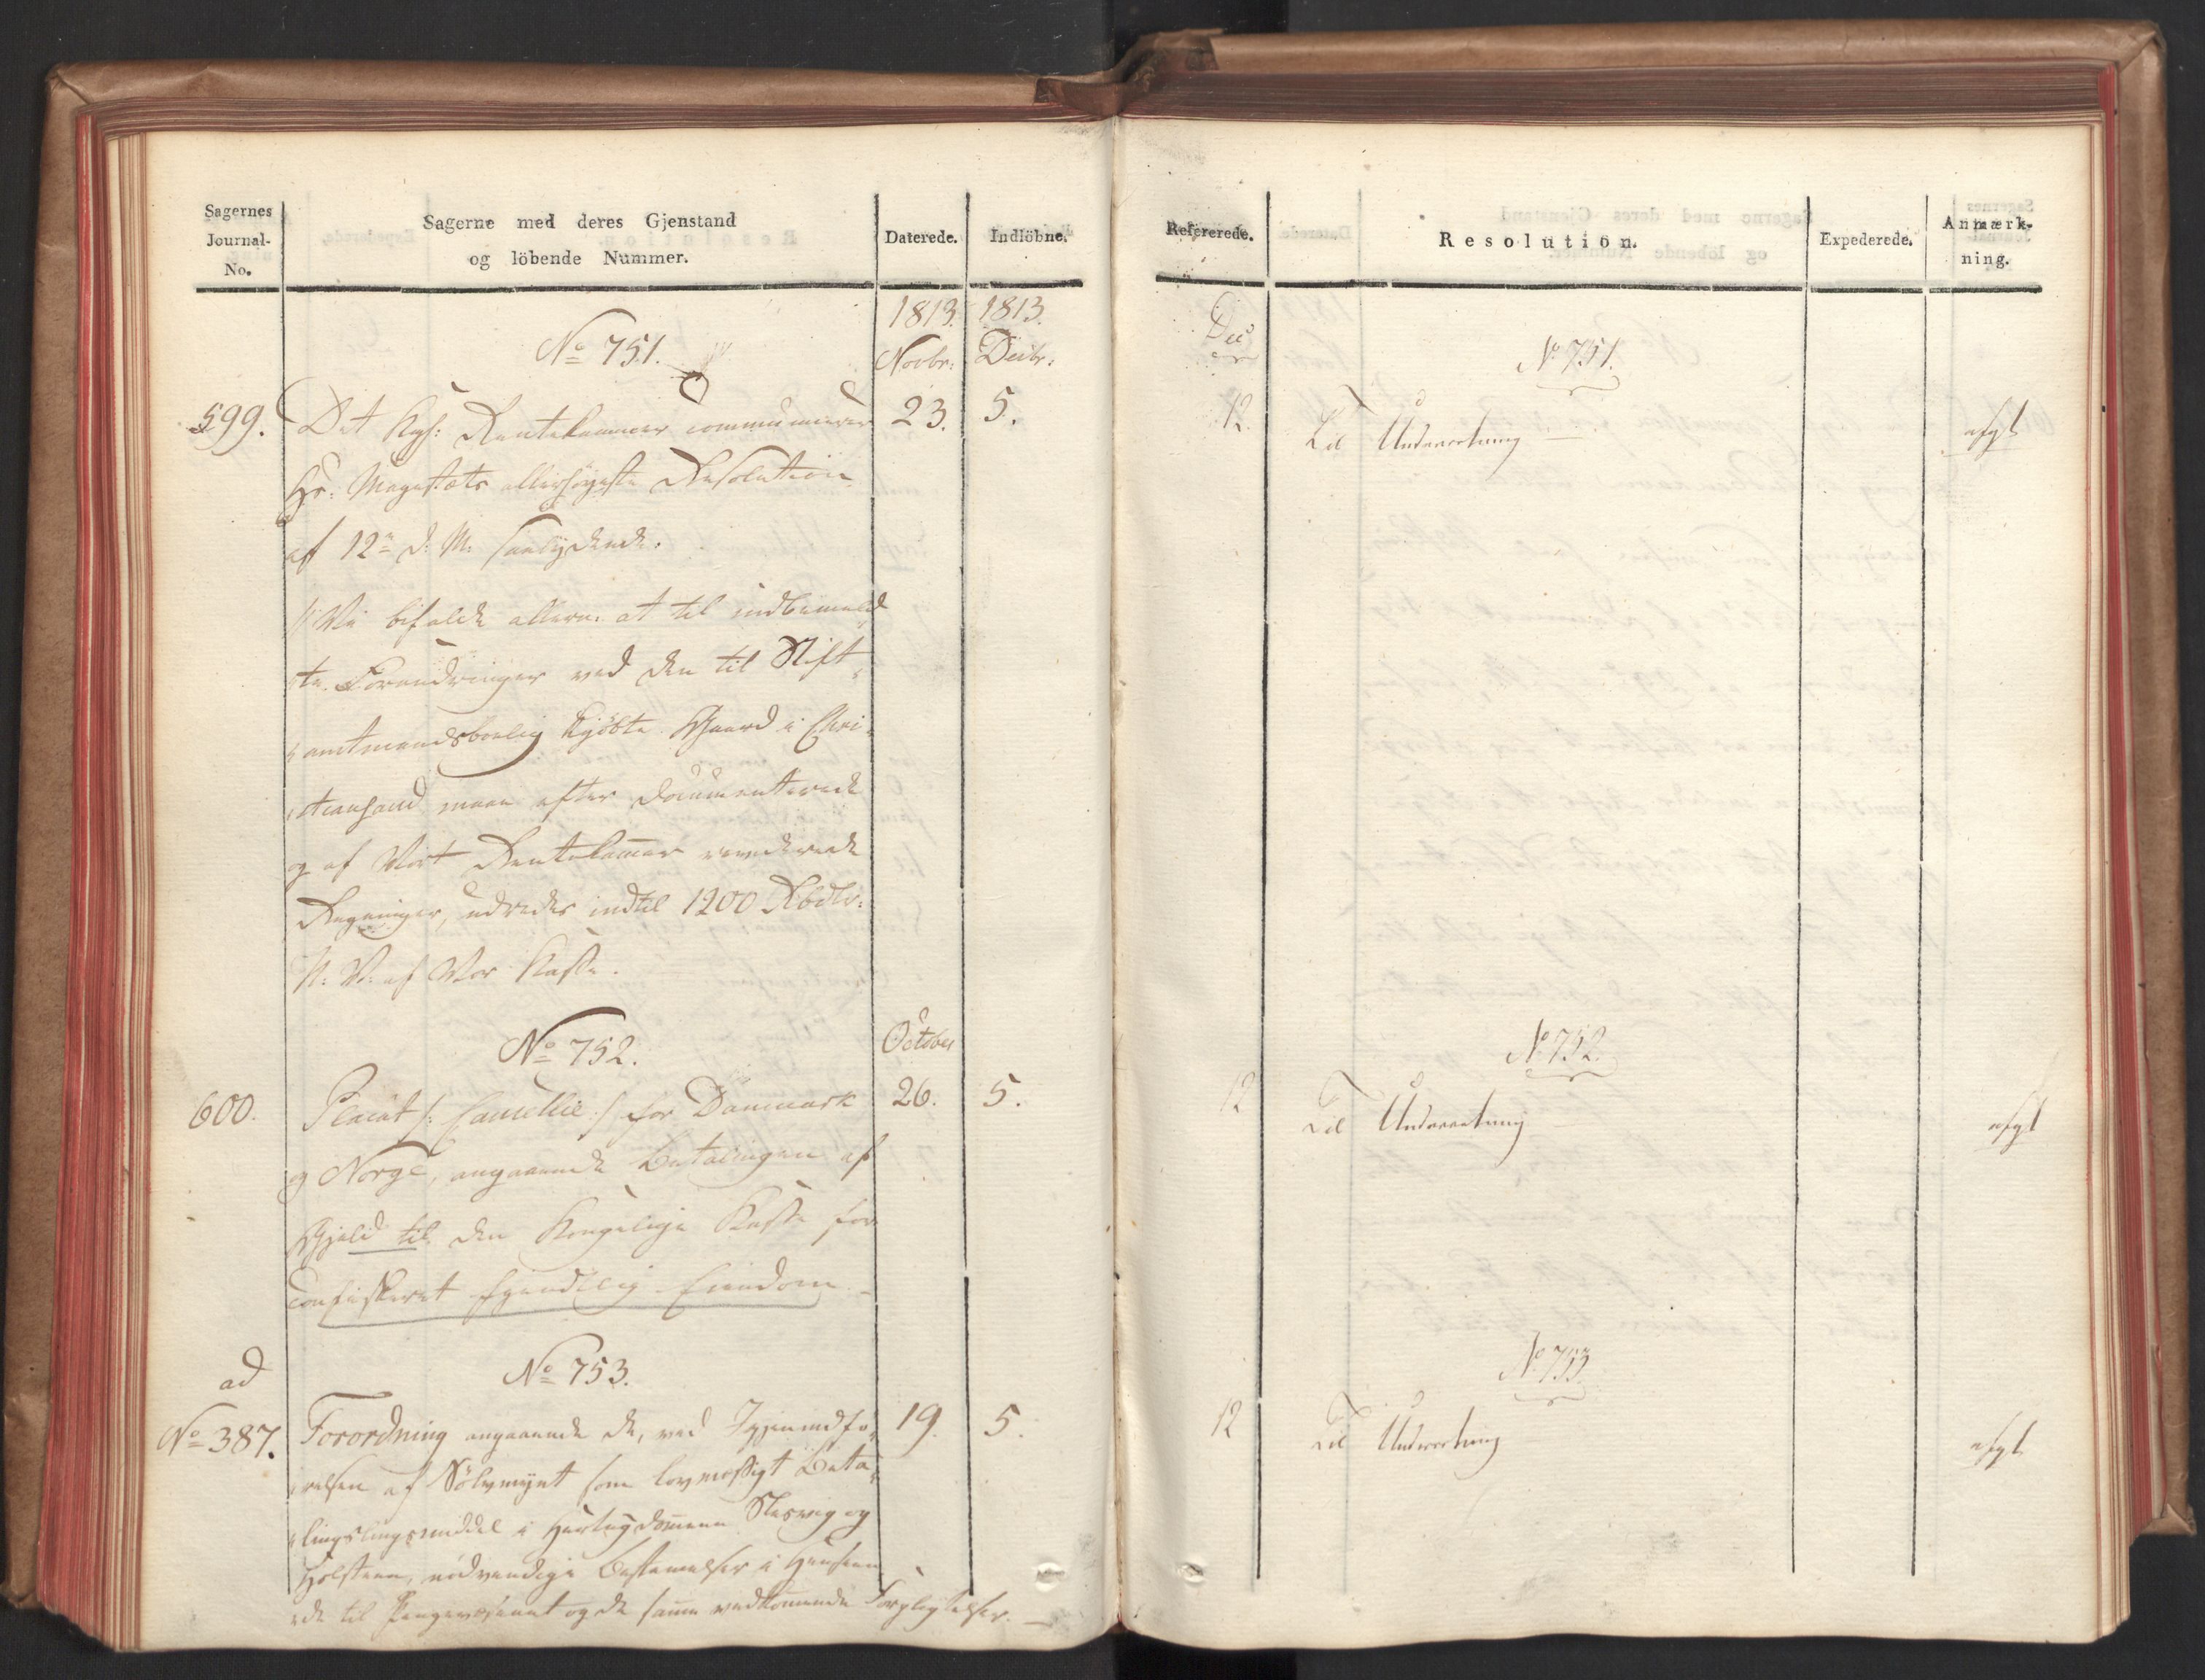 Sagernes
Journal-
No.
Sagerne med deres Gjenstand
og löbende Nummer.
Daterede.
Indlöbne.
1813.
1813.
No 751.
Novbr:
Decbr:
599.
Det Kgl: Rentekammer communicerer
23.
5.
Hs: Majestæts allerhøyeste Resolution
af 12te d: M: saalydende:
"Vi bifalde allern: at til indbemeld
te Forandringer ved den til Stift
amtmandsboelig kjöbte Gaard i Chri
stiansand maae efter documenterede
og af Vort Rentekammer reviderede
Regninger, udredes indtil 1200 Rbdlr:
N: V: af Vor Kasse.
No 752.
October
600.
Placat /: Cancellie :/ for Danmark
26.
5.
og Norge, angaaende Betalingen af
Gjeld til den Kongelige Kasse for
confiskeret fiendtlig Eiendom
ad
No 753.
No 387.
Forordning angaaende de, ved Igjenindfö
19.
5.
relsen af Sölvmynt som lovmæssigt Beta
lingslingsmiddel i Hertugdömmene Slesvig og
Holsteen, nödvendige Bestemmelser i Henseen
de til Pengevæsenet og de samme vedkommende Forpligtelser.
Refererede.
Resolution.
Expederede.
Anmærk-
ning.
Dec
No 751.
12.
Til Underretning
afgl
No 752.
12
Til Underretning
afgl
No 753
12
Til Underretning
afgl